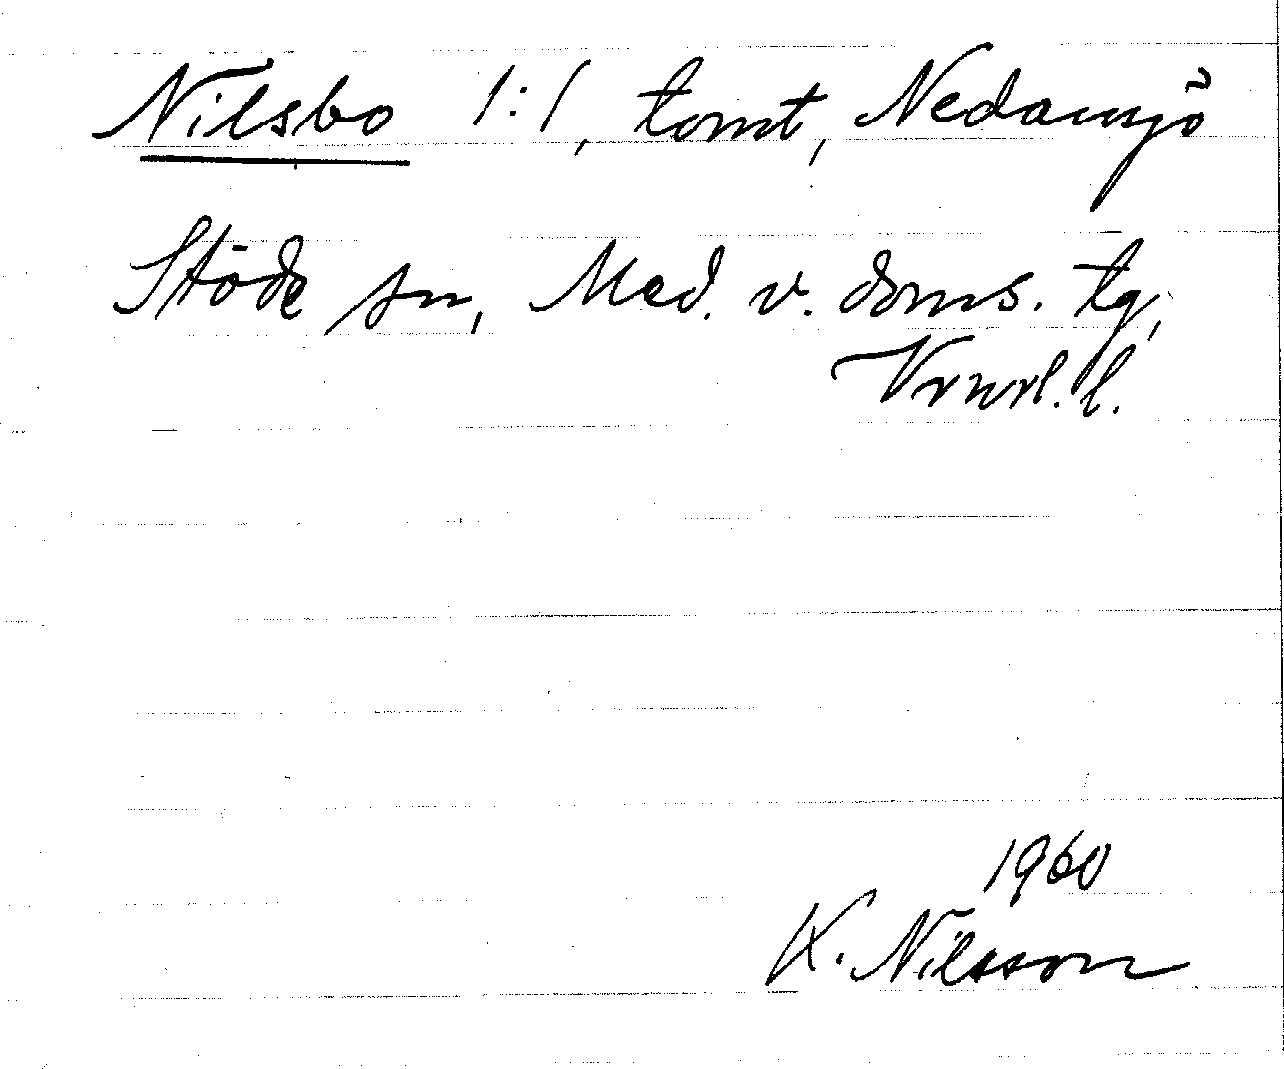 Nilsbo 1:1, tomt, Nedansjö
Stöde sn, Med. v. doms. tg,
Vrnrl. l.
1960
K. Nilsson